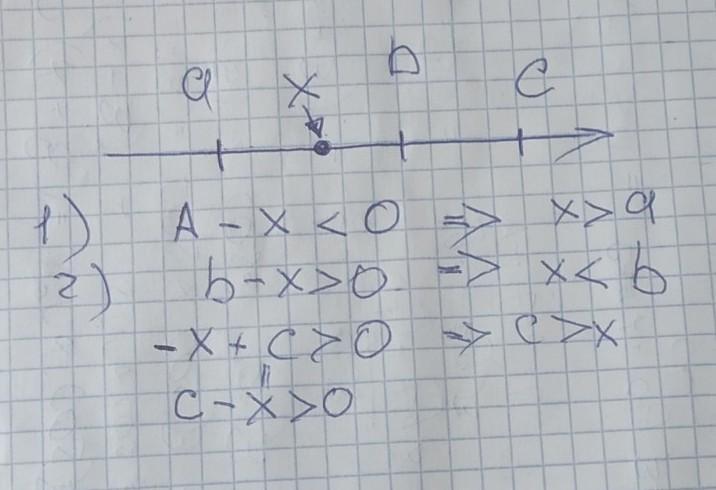 a x b c
1) A - x < 0 => x > a
2) b - x > 0 => x < b
-x + c > 0 => c > x
=
c - x > 0